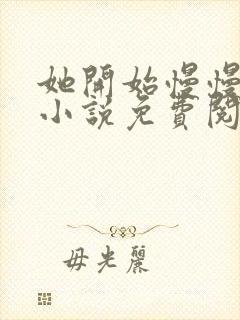 她開始慢慢
小說免費閱
毋光麗